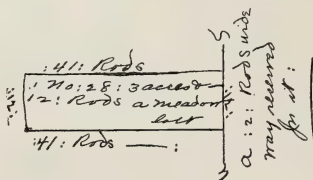 :41: Rods
No: 28: 3 acres
12: Rods a meadow
lott
:41: Rods — :
:12:
:12:
a :2: Rods wide
way reserved
for it: